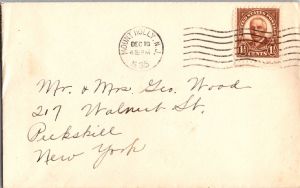 MOUNT HOLLY, N.J.
DEC 19
1935
UNITED STATES POSTAGE
1½ CENTS 1½
Mr. & Mrs. Geo. Wood
217 Walnut St.
Peekskill
New York